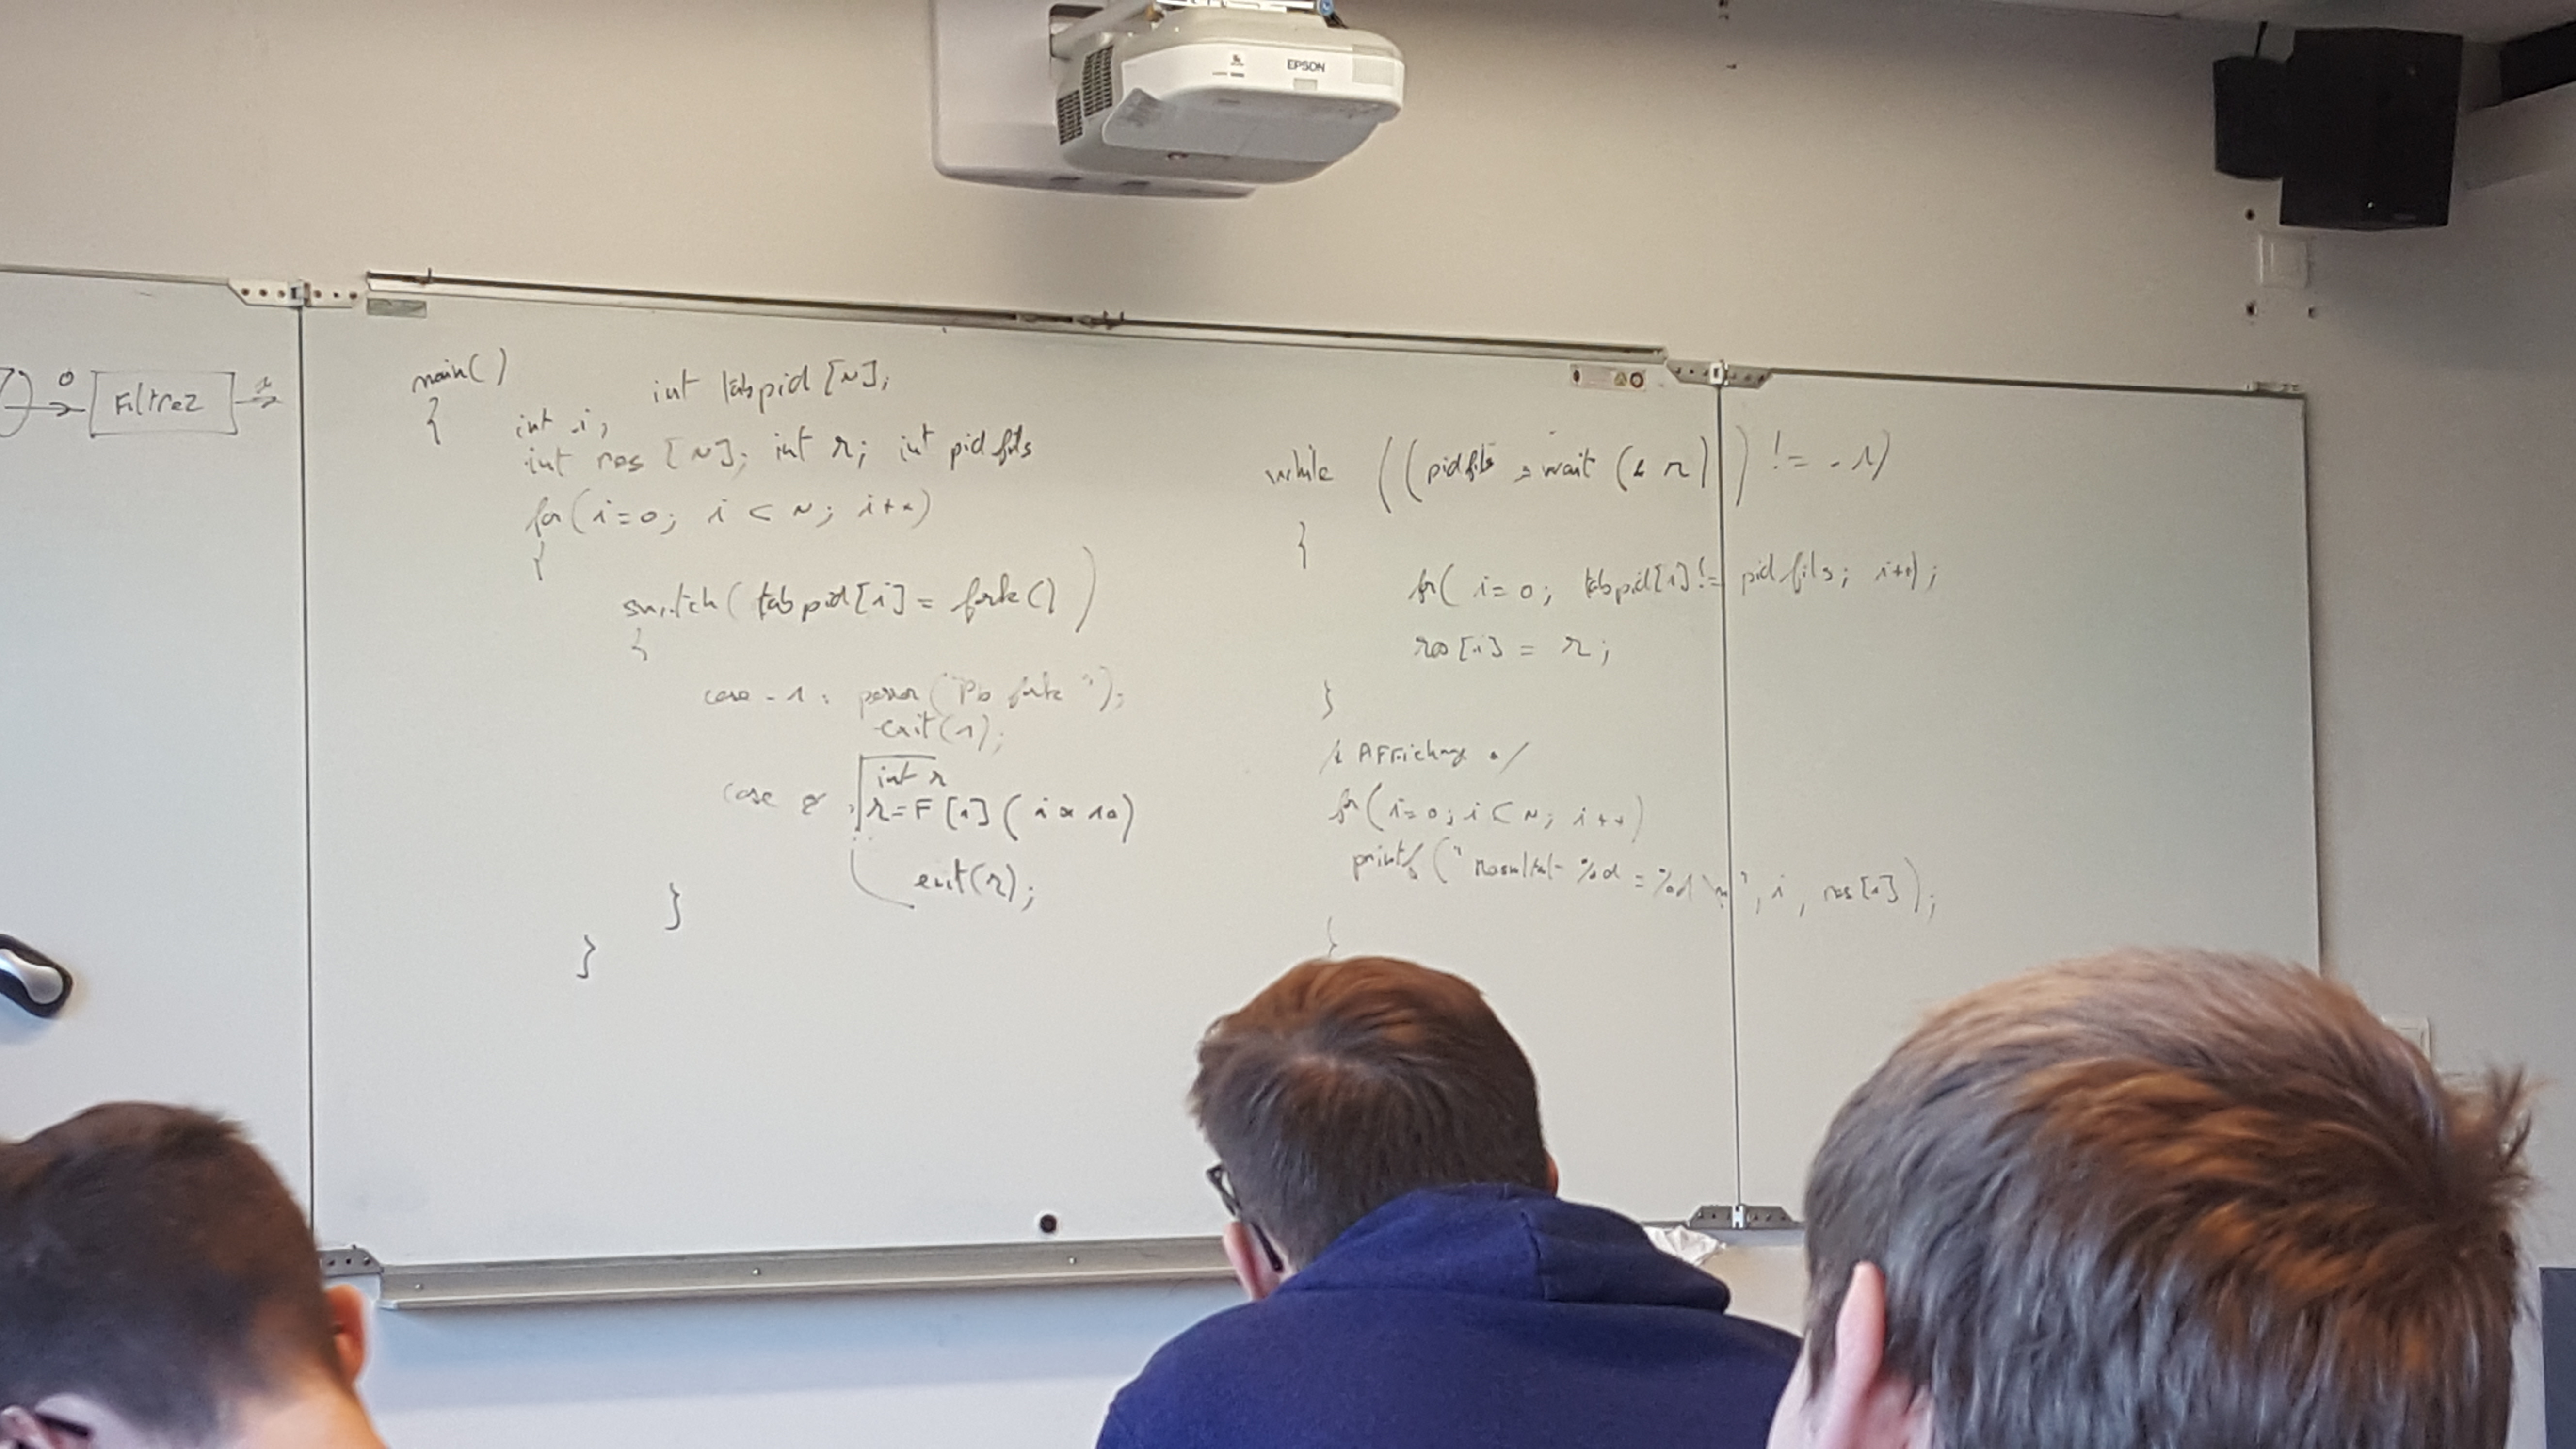 EPSON
0
Filtre2
main()
{
int tabpid [N];
int i;
int res [N]; int r; int pidfils
for(i=0; i < N; i++)
{
switch( tabpid[i] = fork() )
{
case -1 : perror("Pb fork");
exit(1);
int r
case 0 : r=F[i](i * 10)
exit(r);
}
}
while ((pidfils = wait (& r)) != -1)
{
for( i=0; tabpid[i] != pidfils; i++);
res[i] = r;
}
/* Affichage */
for(i=0; i < N; i++)
printf("Resultat %d = %d \n", i, res[i]);
}